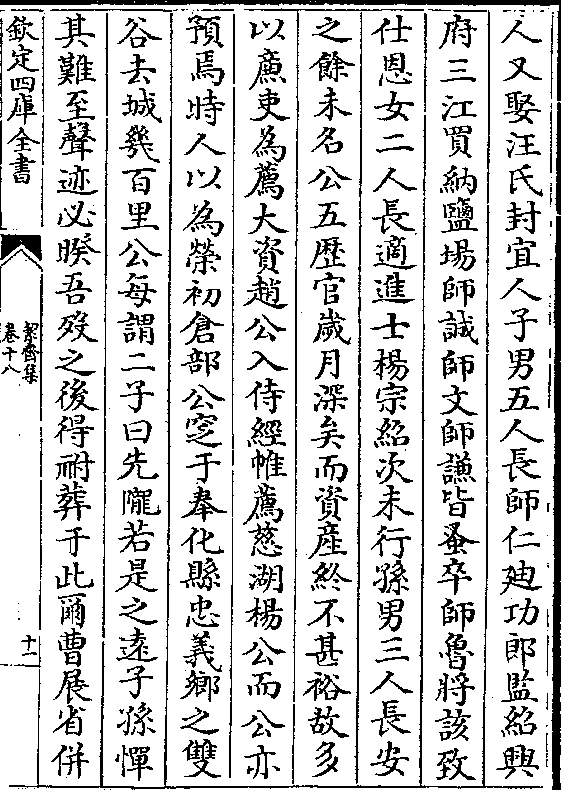 人又娶汪氏封宜人子男五人長師仁廸功郎監紹興
府三江買納鹽場師誠師文師謙皆蚤卒師魯將該致
仕恩女二人長適進士楊宗紹次未行孫男三人長安
之餘未名公五歴官歲月深矣而資産終不甚裕故多
以亷吏為薦大資趙公入侍經帷薦慈湖楊公而公亦
預焉時人以為榮初倉部公窆于奉化縣忠義鄉之雙
谷去城幾百里公每謂二子曰先隴若是之遠子孫憚
其難至聲迹必暌吾歿之後得祔葬于此爾曹展省併
欽定四庫全書
絜齋集
卷十八
十一